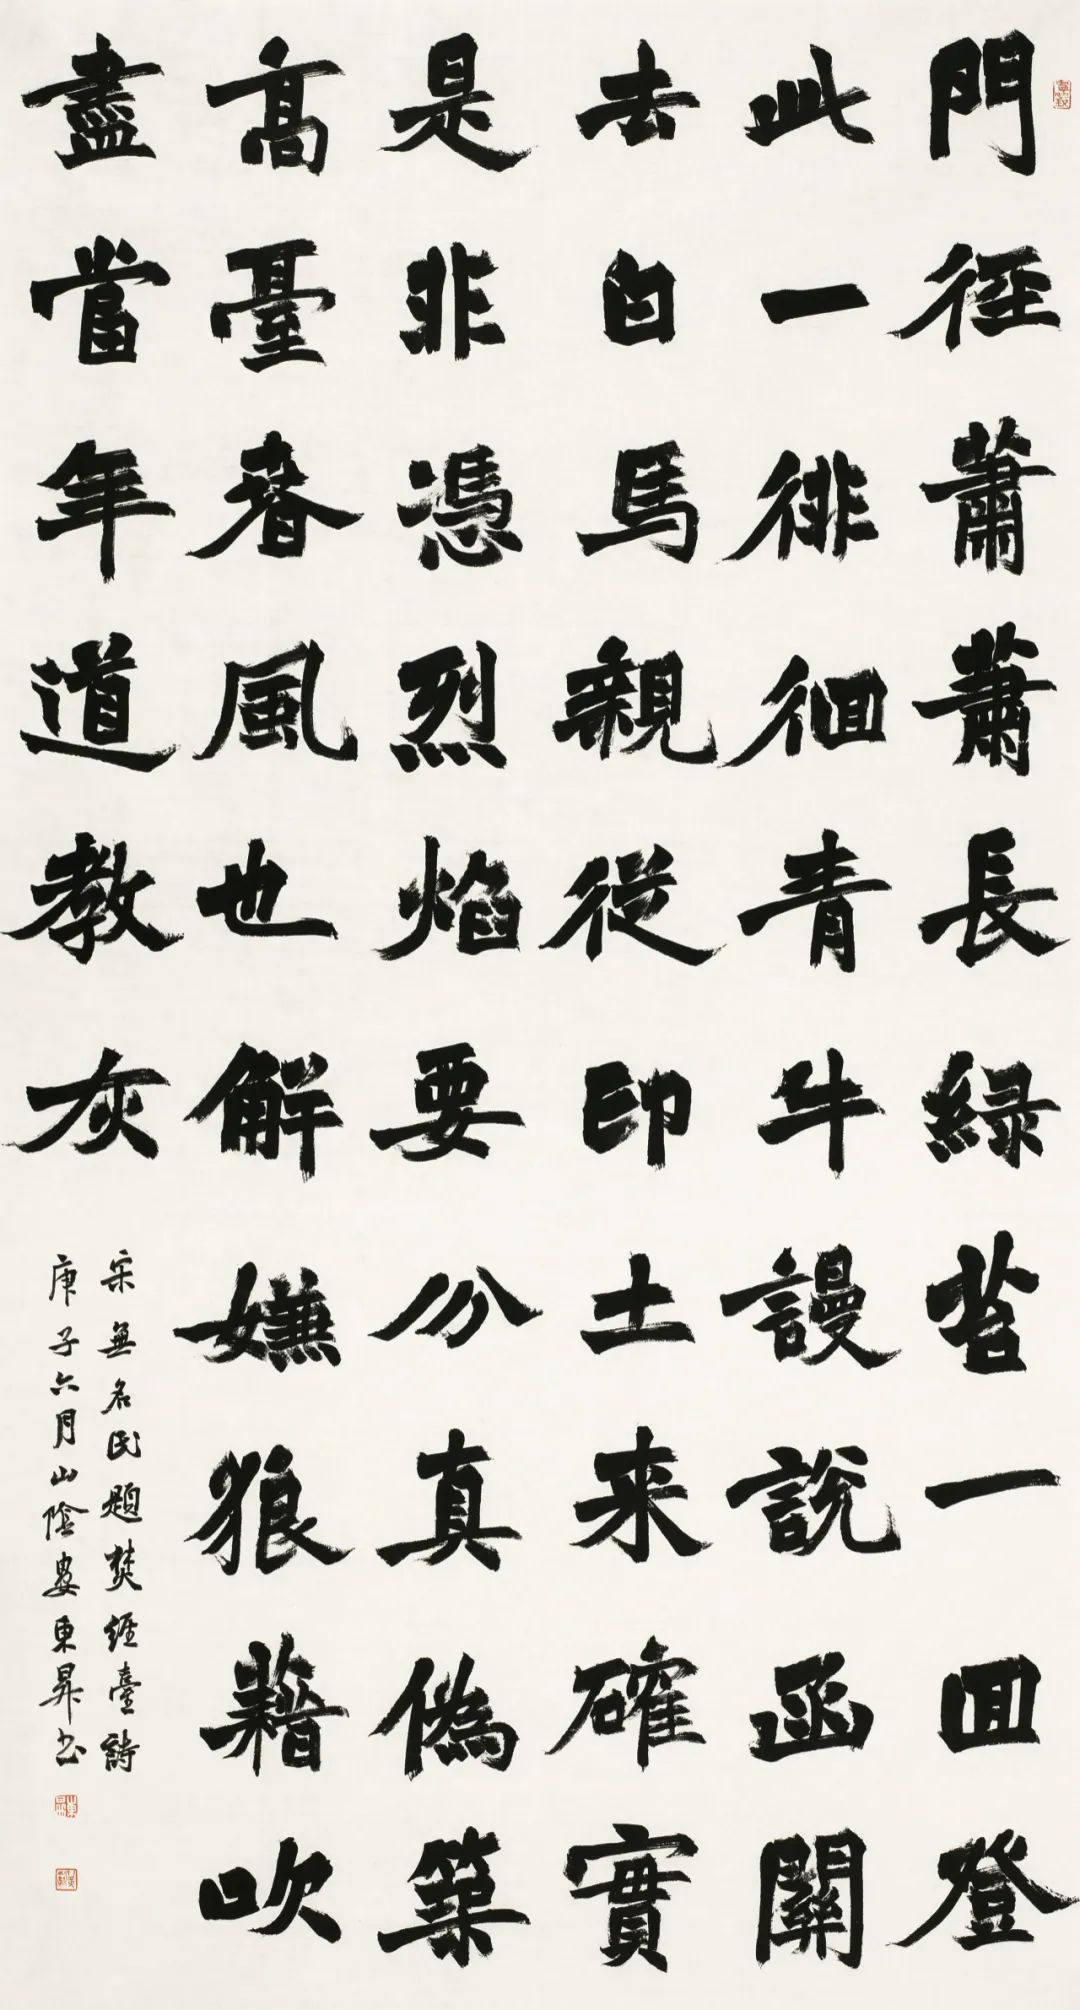 門徑蕭蕭長緑苔一回登
此一徘徊青牛謾說函關
去白馬親從印土来確實
是非憑烈焰要分真偽築
高臺春風也解嫌狼藉吹
盡當年道教灰
宋無名民題焚經臺詩
庚子六月山陰婁東昇书